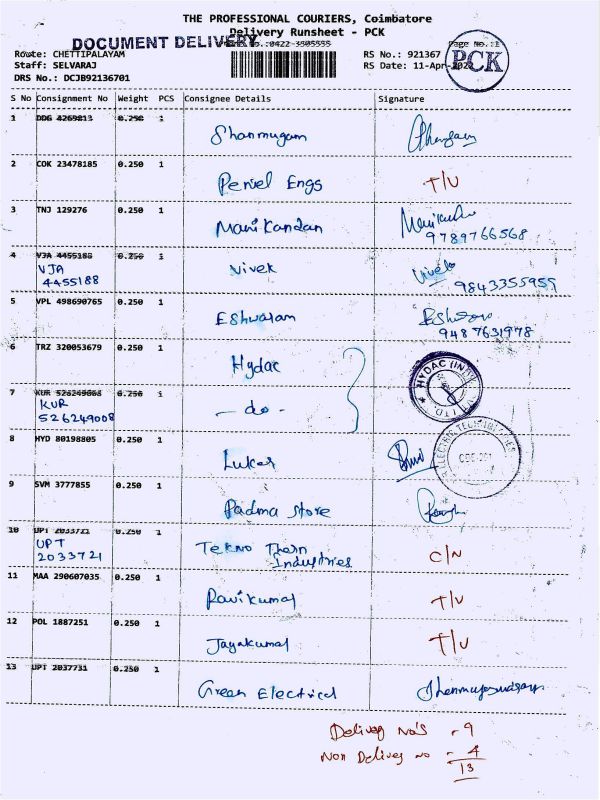 THE PROFESSIONAL COURIERS, Coimbatore
Delivery Runsheet - PCK
DOCUMENT DELIVERY No.:0422-3505555 Page No.:1
Route: CHETTIPALAYAM RS No.: 921367
PCK
Staff: SELVARAJ RS Date: 11-Apr-2022
DRS No.: DCJB92136701
S No Consignment No Weight PCS Consignee Details Signature
1 DDG 4269813 0.250 1 Shanmugam
2 COK 23478185 0.250 1 Peniel Engs T/U
3 TNJ 129276 0.250 1 Manikandan
9789766568
4 VJA 4455188 0.250 1 Vivek Vivek
VJA
4455188 9843355959
5 VPL 498690765 0.250 1 Eshwaram
9487631978
6 TRZ 320053679 0.250 1 Hydac
HYDAC (IN LTD.
7 KUR 526249008 0.250 1 - do -
KUR
526249008
8 HYD 80198805 0.250 1 Luker
ELECTRIC TECHNOLOGIES
CBE
9 SVM 3777855 0.250 1 Padma Store
10 UPT 2033721 0.250 1 Tekno Therm
UPT
2033721 Industries C/N
11 MAA 290607035 0.250 1 Ravikumar T/U
12 POL 1887251 0.250 1 Jayakumar T/U
13 UPT 2037731 0.250 1 Green Electrical
Delivery No's - 9
Non Delivery no - 4
13